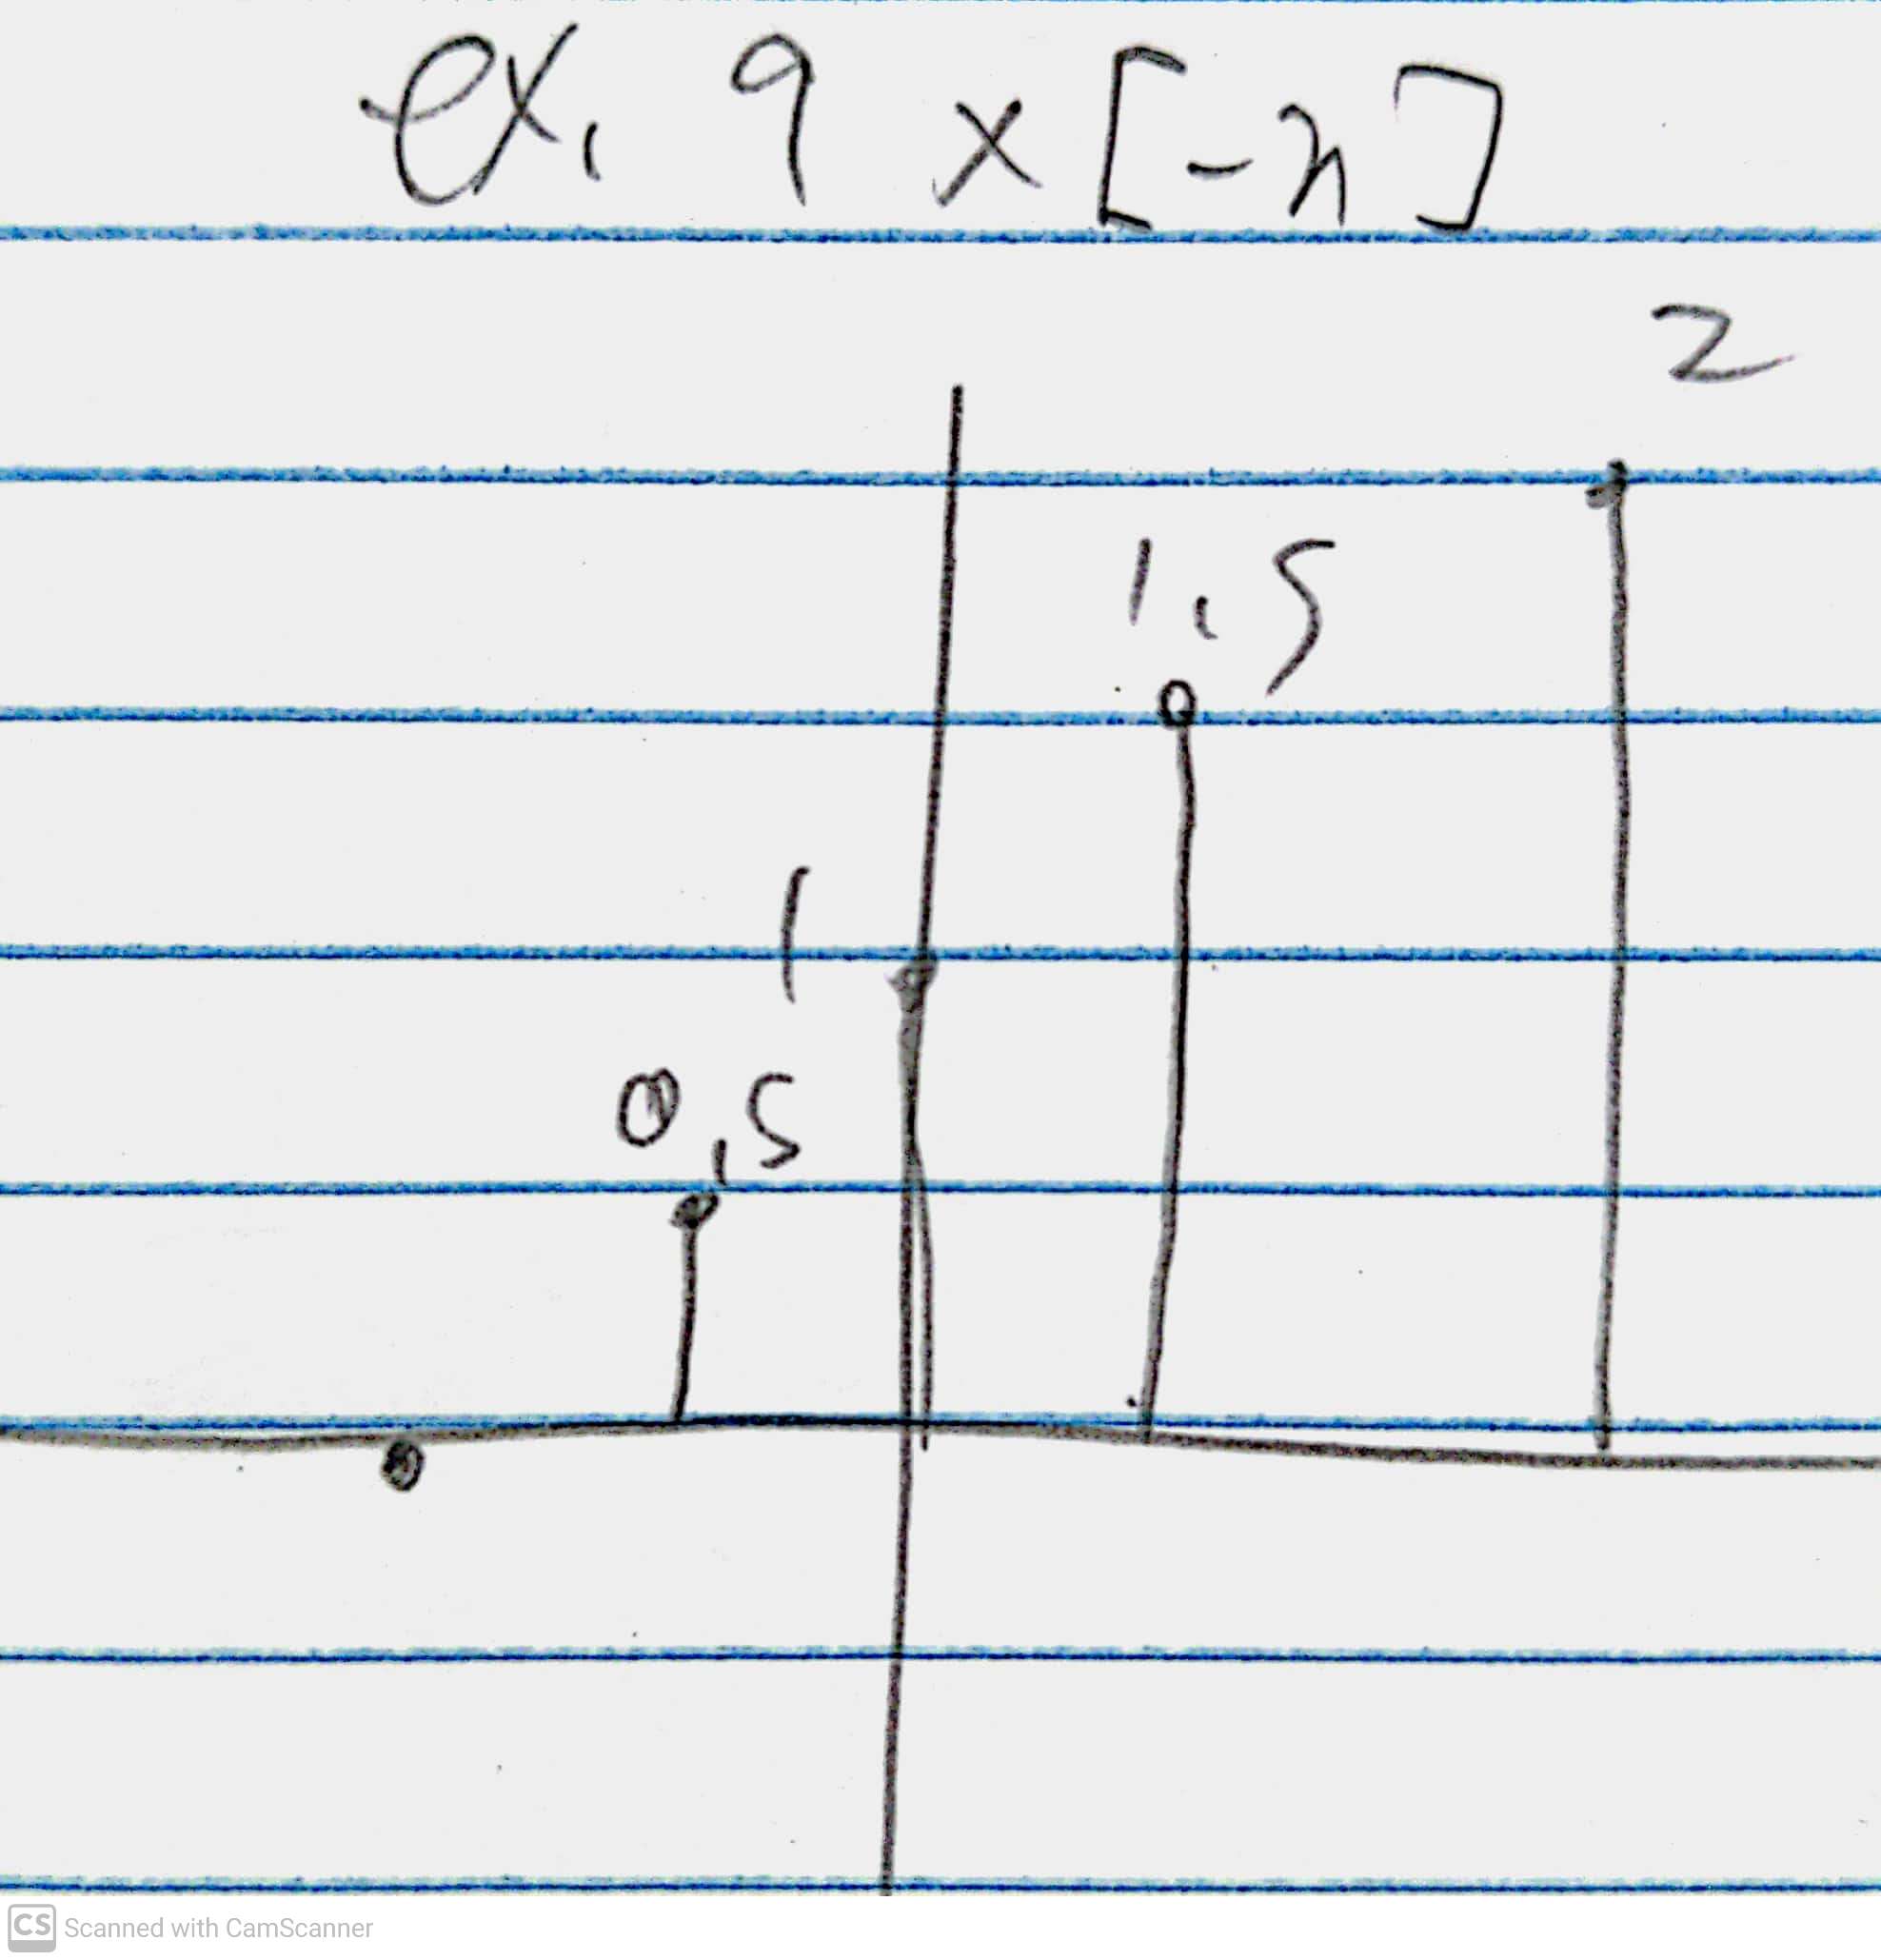 ex. 9 x[-n]
2
1.5
1
0.5
CS Scanned with CamScanner